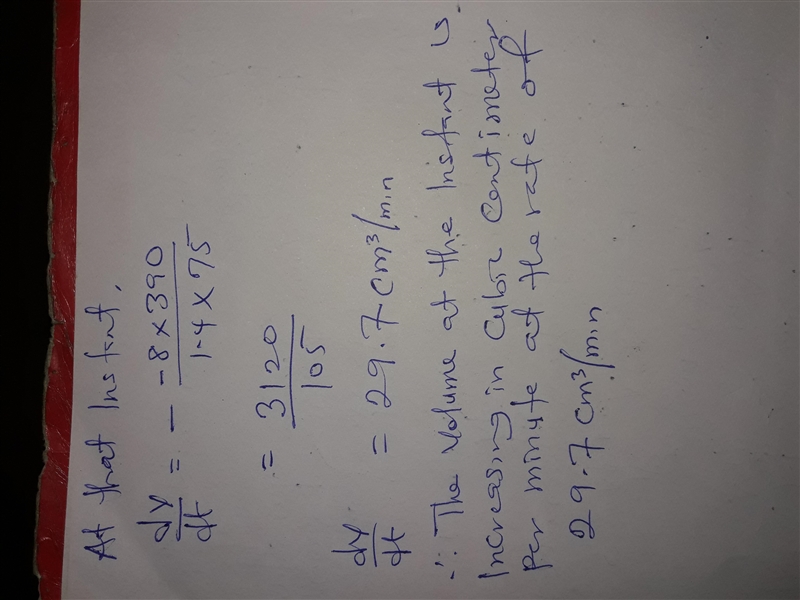 At that Instant,
dv/dt = - -8×390/1.4×75
= 3120/105
dv/dt = 29.7cm³/min
∴ The volume at the Instant is
Increasing in Cubic Centimeter
per minute at the rate of
29.7cm³/min